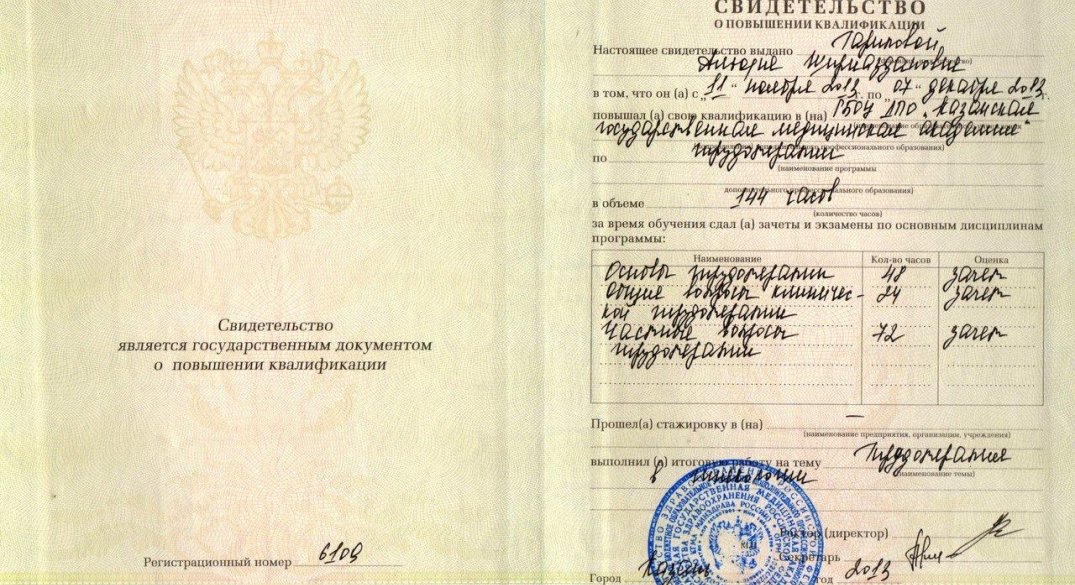 Свидетельство
является государственным документом
о повышении квалификации
Регистрационный номер 6109
СВИДЕТЕЛЬСТВО
О ПОВЫШЕНИИ КВАЛИФИКАЦИИ
Настоящее свидетельство выдано
в том, что он (а) с „11“ ноября 2013 г. по „07“ декабря 2013 г.
повышал (а) свою квалификацию в (на) ГБОУ ДПО „Казанская
государственная медицинская академия“
профессионального образования)
по гирудотерапии
(наименование программы
дополнительного профессионального образования)
в объеме 144 часов
(количество часов)
за время обучения сдал (а) зачеты и экзамены по основным дисциплинам
программы:
Наименование Кол-во часов Оценка
Основы гирудотерапии 48 зачет
Общие вопросы клиничес- 24 зачет
кой гирудотерапии
Частные вопросы 72 зачет
гирудотерапии
Прошел(а) стажировку в (на) —
(наименование предприятия, организации, учреждения)
выполнил (а) итоговую работу на тему Гирудотерапия
(наименование темы)
в
Ректор (директор)
Секретарь
Город Казань год 2013